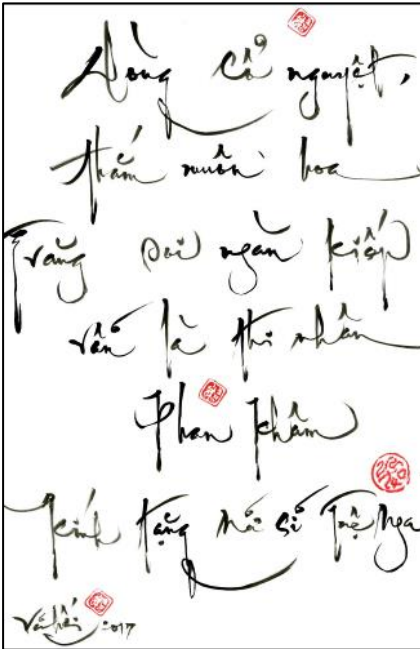 Dòng cổ nguyệt,
thắm muôn hoa
Trăng soi ngàn kiếp
vẫn là thi nhân
Phan Khâm
Kính tặng thi sĩ Tuệ Nga
2017